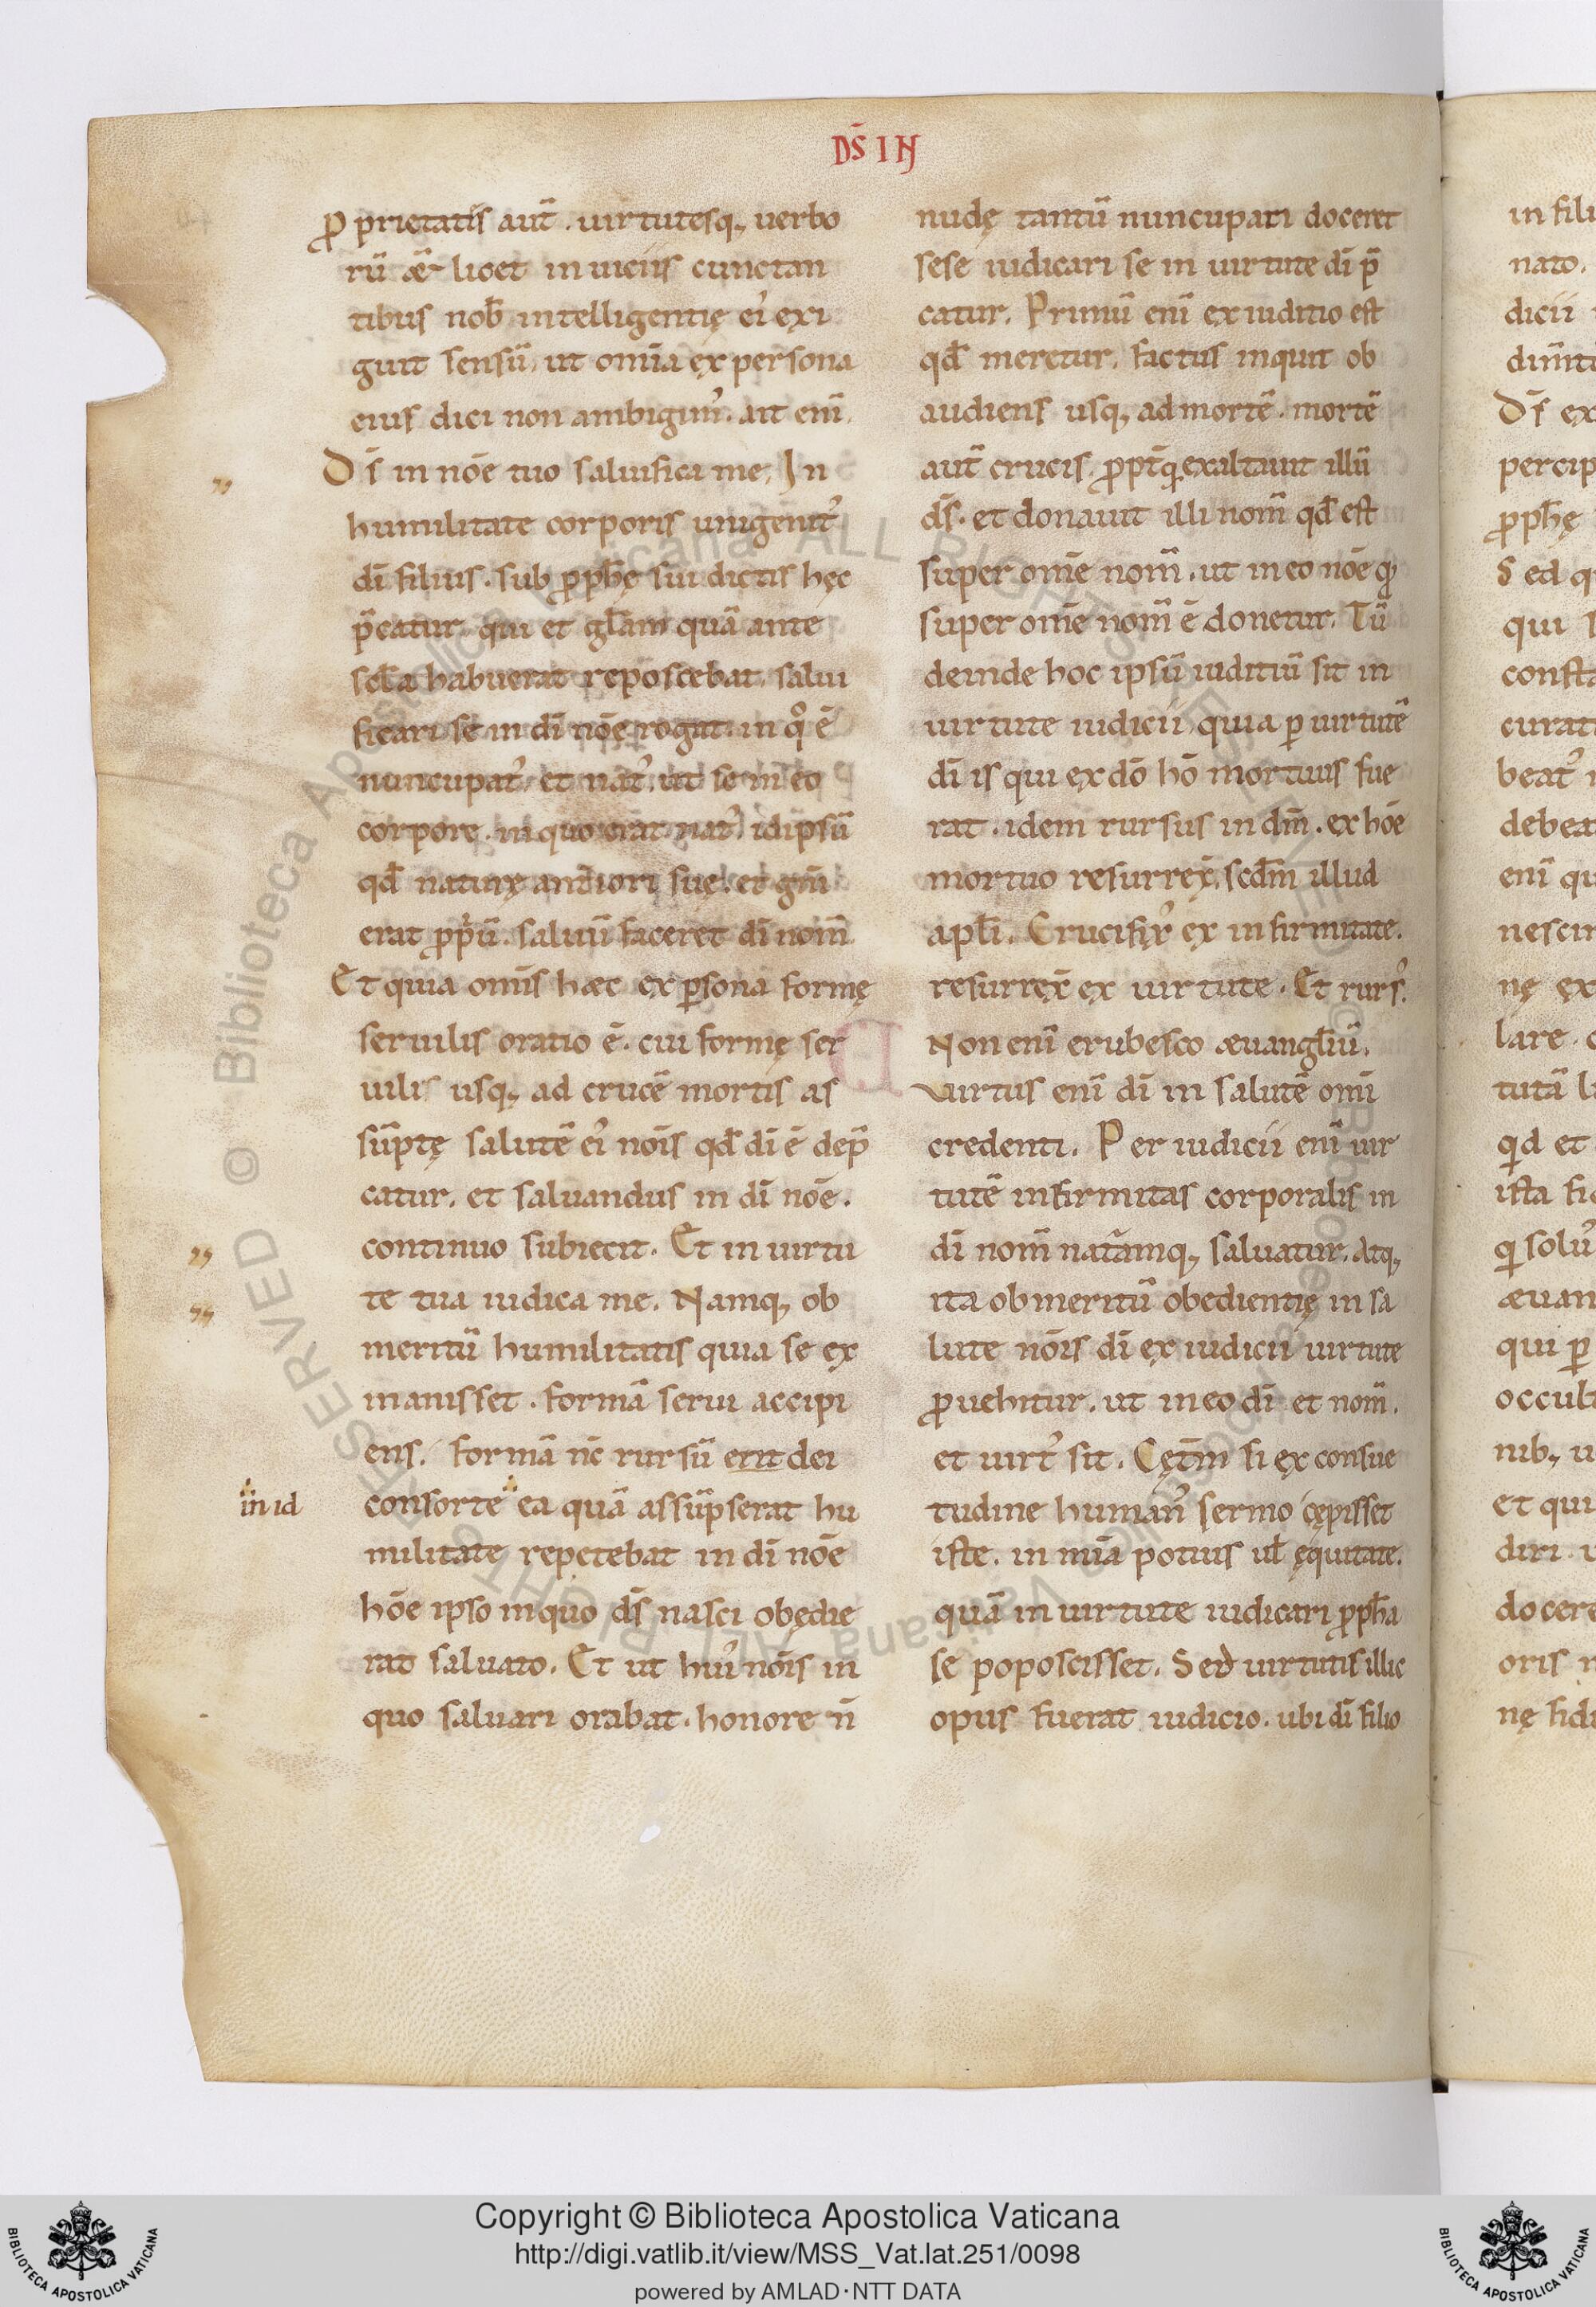 DS̄ IN
ꝓprietatis aut̄ . uirtutesq; uerbo
rū æt̄ licet in uiciis cunctan
tibus nob̄ intelligentię ei᾽ exi
gunt sensū, ut om̄ia ex persona
eius dici non ambigim᾽. ait enī.
Ds̄ in nōe tuo saluifica me, In
humilitate corporis unigenit᾽
dī filius . sub ꝓph̄ę sui dictis hęc
p̄catur, qui et gl̄am quā ante
scl̄a habuerat reposcebat. salui
ficari se in dī nōe rogat. in qͦ ē
nuncupat᾽ et nat᾽. ut se in eo
corpore . in quo erat nat᾽, idipsū
qd̄ naturę anteriori suę. et gn̄i
erat ꝓpriū. saluū faceret dī nom̄
Et quia omīs hæc ex ꝑsona formę
seruilis oratio ē. cui formę ser
uilis usq; ad crucē mortis as
sūptę salutē ei᾽ nōis qd̄ dī ē dep̄
catur. et saluandus in dī nōe .
continuo subiecit. Et in uirtu
te tua iudica me. Namq; ob
meritū humilitatis quia se ex
manisset . formā serui accipi
ens. formā nc̄ rursū erit dei
in id
consorte ea quā assūpserat hu
militate repetebat in dī nōe
hōe ipso in quo ds̄ nasci obędie
rat saluato. Et ut hui᾽ nōis in
quo saluari orabat . honore n̄
nudę tantū nuncupari doceret
sese iudicari se in uirtute dī p̄
catur. Primū enī ex iuditio est
qd̄ meretur. factus inquit ob
audiens usq; ad mortē . mortē
aut̄ crucis, ꝓpt̄ qd exaltauit illū
ds̄ . et donauit illi nom̄ qd̄ est
super omē nom̄ . ut in eo nōe qd
super omē nom̄ ē donetur. Tū
deinde hoc ipsū iuditiū sit in
uirtute iudicii, quia ꝑ uirtutē
dī is qui ex dō hō mortuus fue
rat . idem rursus in dm̄ . ex hōe
mortuo resurrex̄, scd̄m illud
apl̄i. Crucifix᾽ ex infirmitate.
resurrex̄ ex uirtute . Et rurs᾽.
Non enī erubesco æuangl̄iū.
uirtus enī dī in salutē omī
credenti. Per iudicii enī uir
tutē infirmitas corporalis in
dī nom̄ naturāmq; saluatur. Atq;
ita ob meritū obedientię in sa
lute nōis dī ex iudicii uirtute
ꝓuehitur. ut in eo dī et nom̄ .
et uirt᾽ sit. Cęt̄m si ex consue
tudine human᾽ sermo cępisset
iste. in mīa potius ul̄ ęquitate.
quā in uirtute iudicari ꝓph̄a
se poposcisset. Sed uirtutis illic
opus fuerat iudicio. ubi dī filio
Copyright © Biblioteca Apostolica Vaticana
http://digi.vatlib.it/view/MSS_Vat.lat.251/0098
powered by AMLAD·NTT DATA